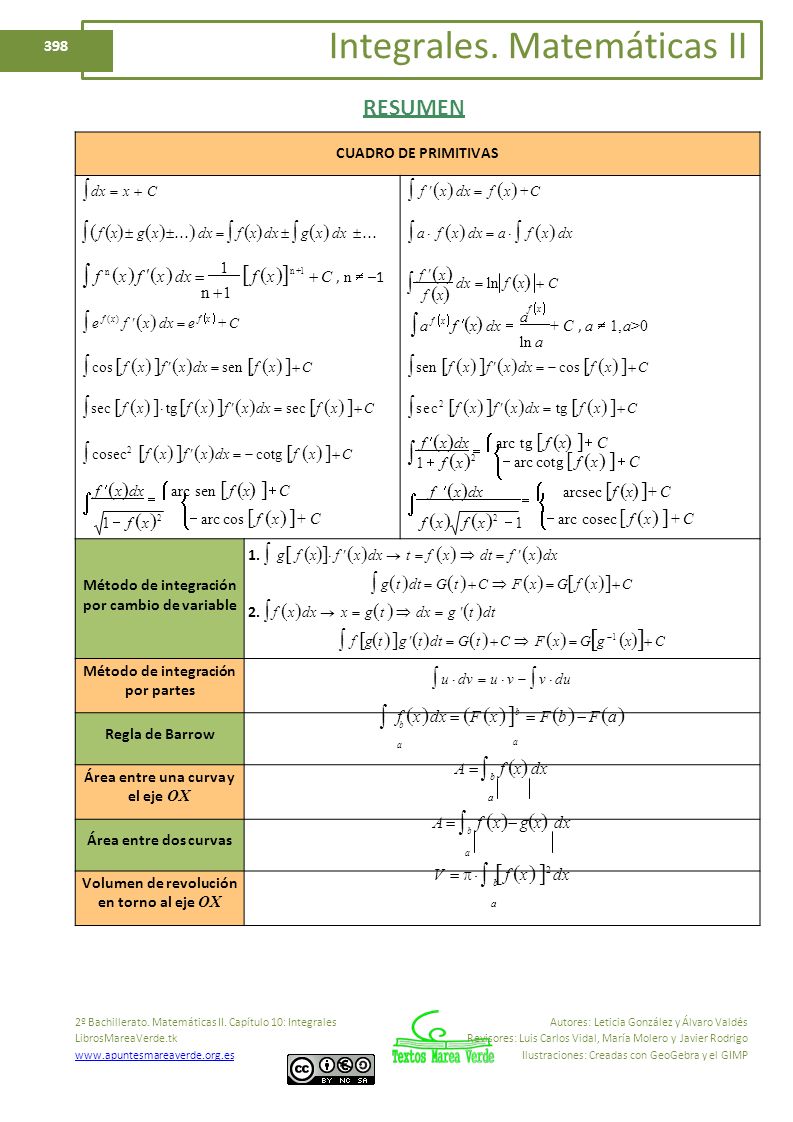 398
Integrales. Matemáticas II
RESUMEN
CUADRO DE PRIMITIVAS
∫ dx = x + C
∫ f '(x) dx = f (x) + C
∫ (f (x) ± g(x) ± …) dx = ∫ f (x) dx ± ∫ g(x) dx ± …
∫ a · f (x) dx = a · ∫ f (x) dx
∫ f ⁿ (x) f '(x) dx = 1/(n + 1) [f (x)]ⁿ⁺¹ + C , n ≠ −1
∫ f '(x)/f (x) dx = ln| f (x) + C
∫ e^f (x) f '(x) dx = e^f (x) + C
∫ a^f (x) f '(x) dx = a^f (x)/ln a + C , a ≠ 1, a>0
∫ cos [f (x)] f '(x) dx = sen [f (x)] + C
∫ sen [f (x)] f '(x) dx = − cos [f (x)] + C
∫ sec [f (x)] · tg [f (x)] f '(x) dx = sec [f (x)] + C
∫ sec² [f (x)] f '(x) dx = tg [f (x)] + C
∫ cosec² [f (x)] f '(x) dx = − cotg [f (x)] + C
∫ f '(x) dx/(1 + f (x)²) = { arc tg [f (x)] + C
− arc cotg [f (x)] + C
∫ f '(x) dx/√(1 − f (x)²) = { arc sen [f (x)] + C
− arc cos [f (x)] + C
∫ f '(x) dx/(f (x) √(f (x)² − 1)) = { arcsec [f (x)] + C
− arc cosec [f (x)] + C
Método de integración
por cambio de variable
1. ∫ g[f (x)] · f '(x) dx → t = f (x) ⇒ dt = f '(x) dx
∫ g(t) dt = G(t) + C ⇒ F(x) = G[f (x)] + C
2. ∫ f (x) dx → x = g(t) ⇒ dx = g '(t) dt
∫ f [g(t)] g'(t) dt = G(t) + C ⇒ F(x) = G[g⁻¹(x)] + C
Método de integración
por partes
∫ u · dv = u · v − ∫ v · du
Regla de Barrow
∫ₐᵇ f (x) dx = (F(x)]ₐᵇ = F(b) − F(a)
Área entre una curva y
el eje OX
A = ∫ₐᵇ |f (x)| dx
Área entre dos curvas
A = ∫ₐᵇ |f (x) − g(x)| dx
Volumen de revolución
en torno al eje OX
V = π · ∫ₐᵇ [f (x)]² dx
2º Bachillerato. Matemáticas II. Capítulo 10: Integrales
LibrosMareaVerde.tk
www.apuntesmareaverde.org.es
CC
BY NC SA
Textos Marea Verde
Autores: Leticia González y Álvaro Valdés
Revisores: Luis Carlos Vidal, María Molero y Javier Rodrigo
Ilustraciones: Creadas con GeoGebra y el GIMP